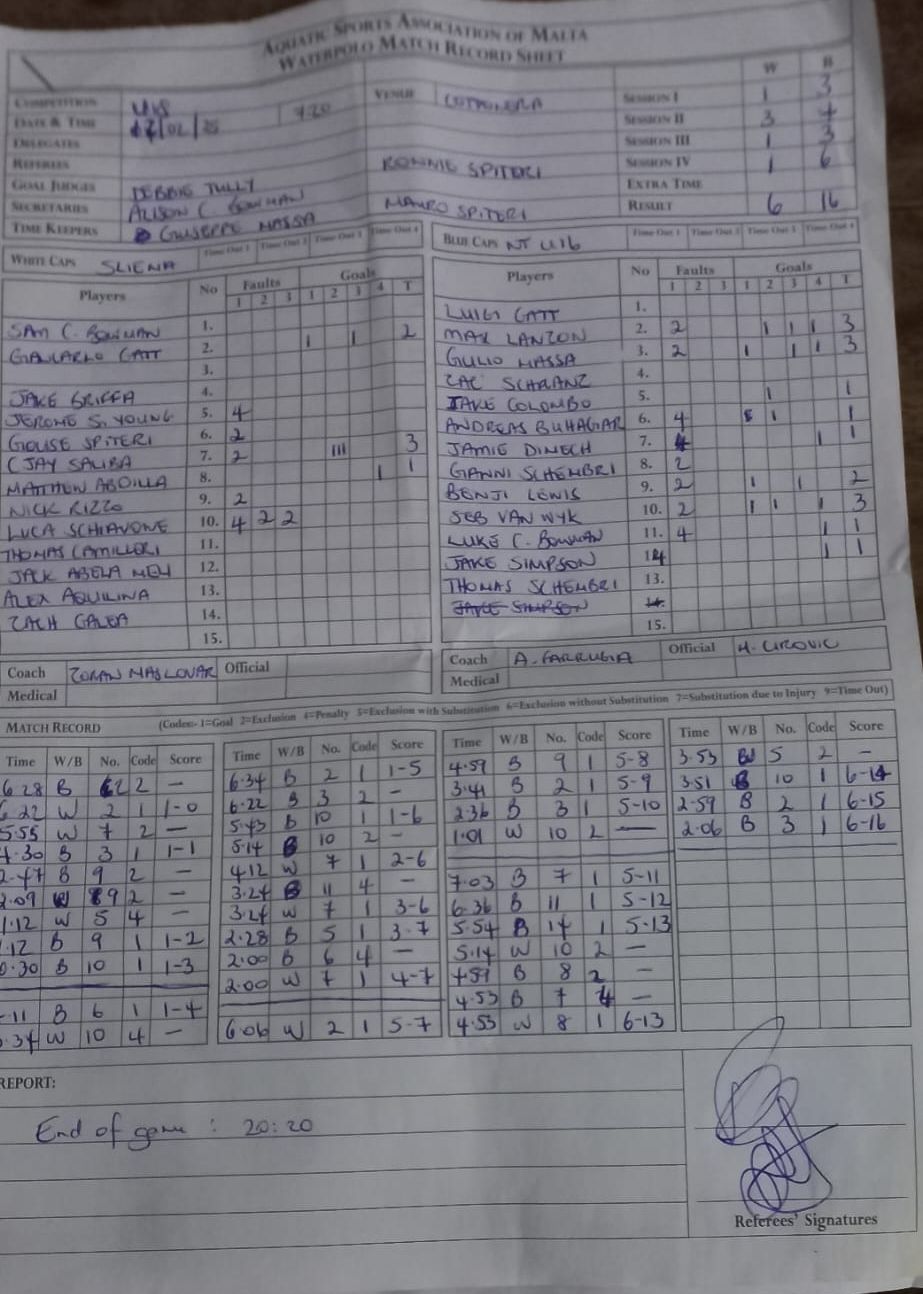 AQUATIC SPORTS ASSOCIATION OF MALTA
WATERPOLO MATCH RECORD SHEET
W B
COMPETITION U18 VENUE COTTONERA SESSION I 1 3
DATE & TIME 02/25 7.20 SESSION II 3 4
DELEGATES SESSION III 1 3
REFEREES RONNIE SPITERI SESSION IV 1 6
GOAL JUDGES DEBBIE TULLY EXTRA TIME
SECRETARIES ALISON C. BOWMAN MAURO SPITERI RESULT 6 16
TIME KEEPERS GIUSEPPE MASSA
WHITE CAPS SLIEMA Time Out 1 Time Out 2 Time Out 3 Time Out 4
Players No Faults Goals
1 2 3 1 2 3 4 T
SAM C. BOWMAN 1.
GIANCARLO GATT 2. I I 2
3.
JAKE GRIFFA 4.
JEROME S. YOUNG 5. 4
GOUSE SPITERI 6. 2
CJAY SALIBA 7. 2 III 3
MATTHEW ABDILLA 8. I 1
NICK RIZZO 9. 2
LUCA SCHIAVONE 10. 4 2 2
THOMAS CAMILLERI 11.
JACK ABELA MELI 12.
ALEX AQUILINA 13.
ZACH GALEA 14.
15.
Coach ZORAN MASLOVAR Official
Medical
BLUE CAPS NT U16 Time Out 1 Time Out 2 Time Out 3 Time Out 4
Players No Faults Goals
1 2 3 1 2 3 4 T
LUIGI GATT 1.
MAX LANZON 2. 2 I I I 3
GULIO MASSA 3. 2 I I I 3
ZAC SCHRANZ 4.
JAKE COLOMBO 5. I 1
ANDREAS BUHAGIAR 6. 4 I 1
JAMIE DIMECH 7. 4 I 1
GIANNI SCHEMBRI 8. 2
BENJI LEWIS 9. 2 I I 2
SEB VAN WYK 10. 2 I I I 3
LUKE C. BOWMAN 11. 4 I 1
JAKE SIMPSON 14 I 1
THOMAS SCHEMBRI 13.
JAKE SIMPSON 14.
15.
Coach A. FARRUGIA Official
Medical
MATCH RECORD (Codes:- 1=Goal 2=Exclusion 4=Penalty 5=Exclusion with Substitution 6=Exclusion without Substitution 7=Substitution due to Injury 9=Time Out)
Time W/B No. Code Score
6.28 B 2 2 —
6.22 W 2 1 1-0
5.55 W 7 2 —
4.30 B 3 1 1-1
2.47 B 9 2 —
2.09 W 9 2 —
1.12 W 5 4 —
1.12 B 9 1 1-2
0.30 B 10 1 1-3
.11 B 6 1 1-4
.34 W 10 4 —
Time W/B No. Code Score
6.34 B 2 1 1-5
6.22 B 3 2 —
5.43 B 10 1 1-6
5.14 B 10 2 —
4.12 W 7 1 2-6
3.24 B 11 4 —
3.24 W 7 1 3-6
2.28 B 5 1 3-7
2.00 B 6 4 —
2.00 W 7 1 4-7
6.06 W 2 1 5-7
Time W/B No. Code Score
4.59 B 9 1 5-8
3.41 B 2 1 5-9
2.36 B 3 1 5-10
1.01 W 10 2 —
7.03 B 7 1 5-11
6.36 B 11 1 5-12
5.54 B 14 1 5-13
5.14 W 10 2 —
4.59 B 8 2 —
4.53 B 7 4 —
4.53 W 8 1 6-13
Time W/B No. Code Score
3.53 W 5 2 —
3.51 B 10 1 6-14
2.59 B 2 1 6-15
2.06 B 3 1 6-16
REPORT:
End of game : 20:20
Referees' Signatures